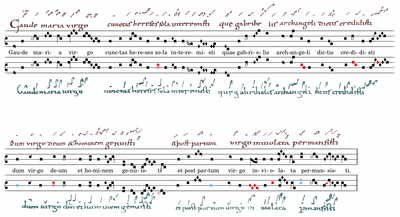 Gaude maria virgo cunctas hereses sola interemisti que gabrihe lis archangeli dictis credidisti
Gau-de ma-ri-a vir-go cunc-tas he-re-ses so-la in-te-re-mi-sti quae ga-bri-e-lis arch-an-ge-li dic-tis cre-di-di-sti
Gaude maria virgo cunctas hereses sola interemisti que gabrihelis archangeli dictis credidisti
Dum virgo deum et hominem genuisti et post partum virgo inviolata permansisti
dum vir-go de-um et ho-mi-nem ge-nu-is-ti et post par-tum vir-go in-vi-o-la-ta per-man-si-sti.
dum virgo deum et hominem genuisti et post partum virgo inviolata permansisti